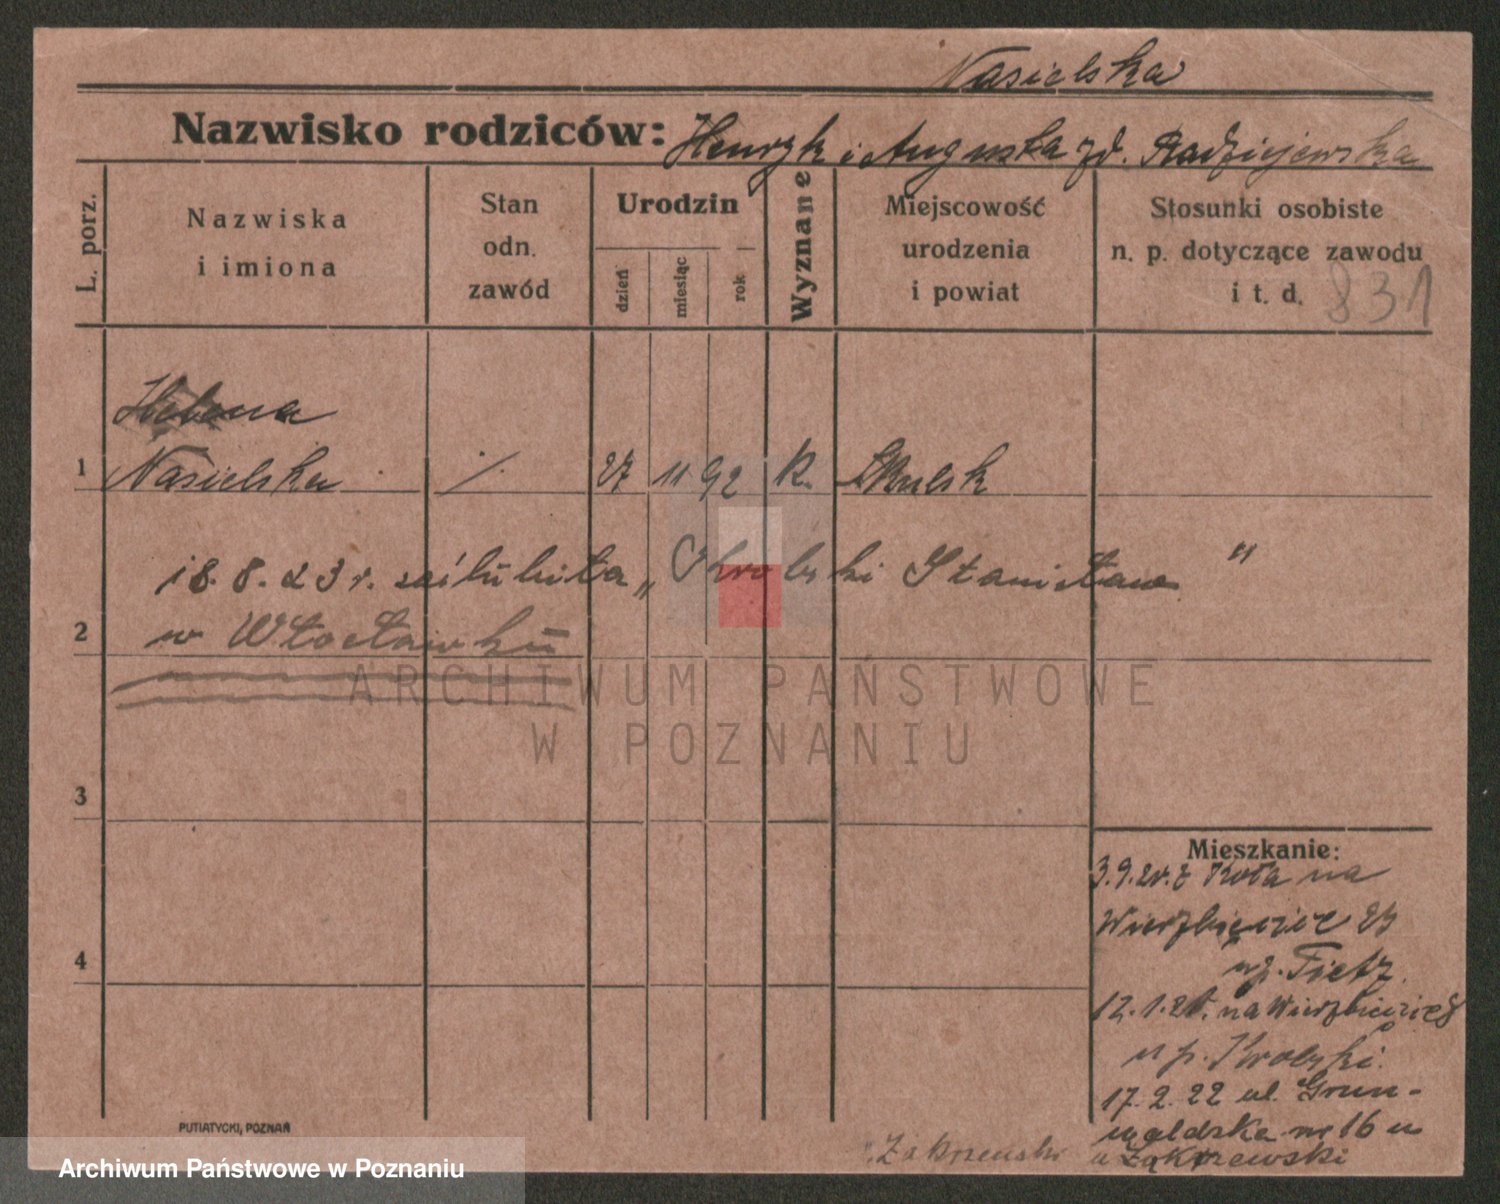 Nasielska
Nazwisko rodziców: Henryk i Augusta zd. Radziejewska
L. porz.
Nazwiska
i imiona
Stan
odn.
zawód
Urodzin
dzień
miesiąc
rok
Wyznane
Miejscowość
urodzenia
i powiat
Stosunki osobiste
n. p. dotyczące zawodu
i t. d.
831
Helena
1 Nasielska ·/. 27 11 92 K. Skulsk
18. 8. 23 r. zaślubiła „ Chrolski Stanisław "
2 w Włocławku
3
4
Mieszkanie:
3.9.20. z Koła na
Wierzbięcice
u p. Tietz.
12.1.21. na Wierzbięcice
u p. Chrolski.
17. 2. 22 ul. Grun-
waldzka nr 16 u
u Zakrzewski
Zakrzewski
PUTIATYCKI, POZNAŃ
ARCHIWUM PAŃSTWOWE
W POZNANIU
Archiwum Państwowe w Poznaniu